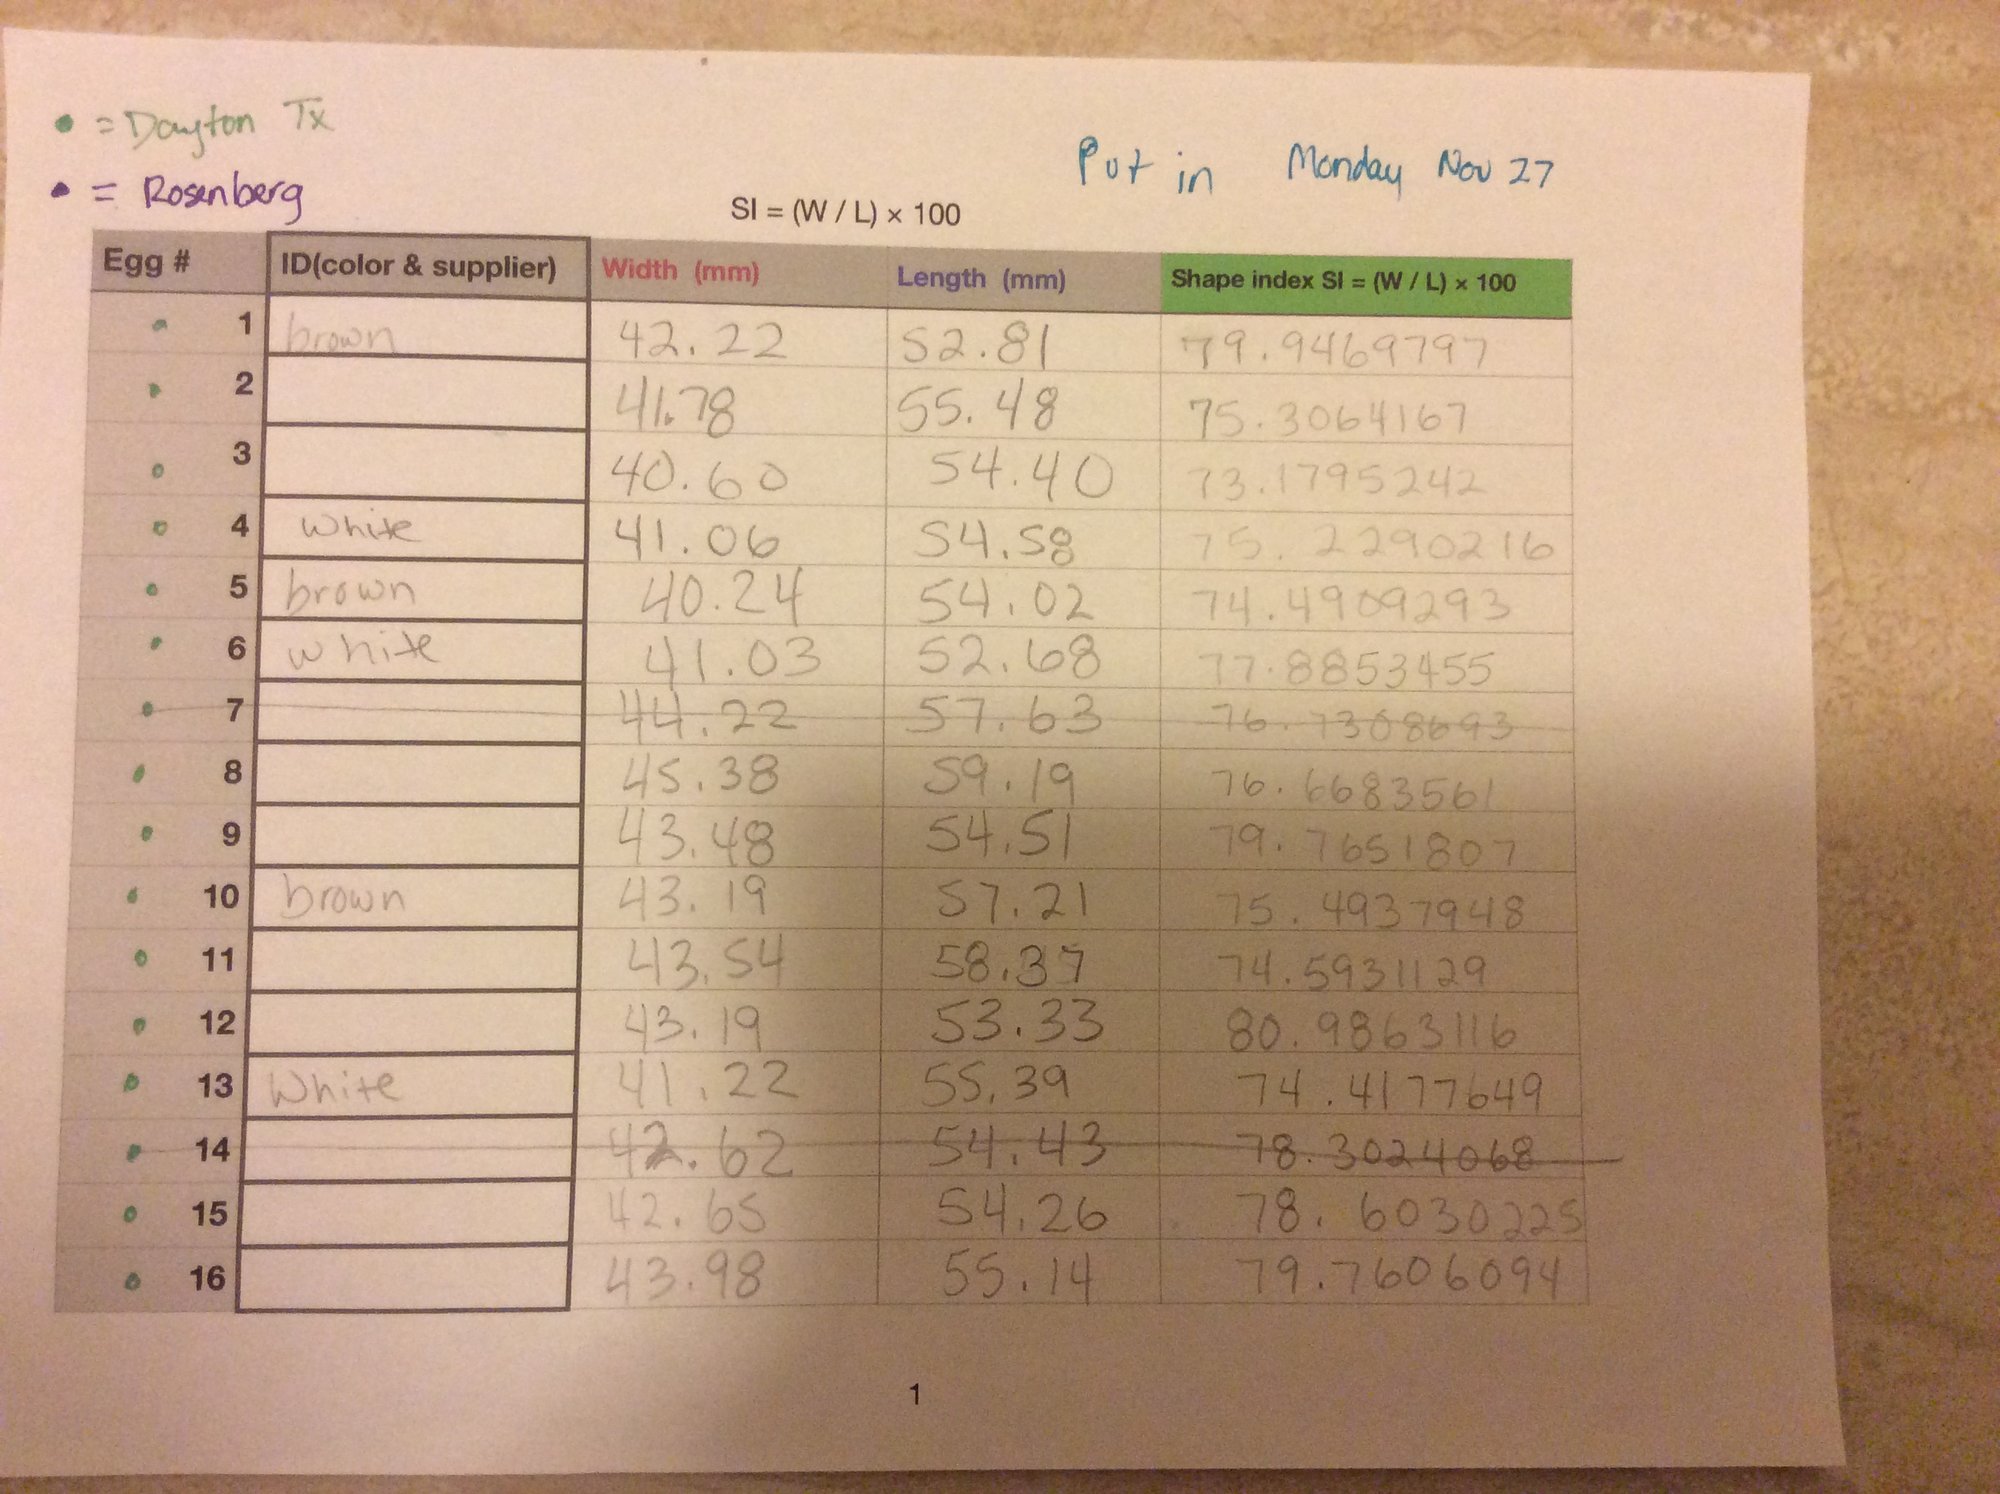 • = Dayton Tx
Put in Monday Nov 27
• = Rosenberg
SI = (W / L) × 100
Egg # ID(color & supplier) Width (mm) Length (mm) Shape index SI = (W / L) × 100
1 brown 42.22 52.81 79.9469797
2 41.78 55.48 75.3064167
3 40.60 54.40 73.1795242
4 white 41.06 54.58 75.2290216
5 brown 40.24 54.02 74.4909293
6 white 41.03 52.68 77.8853455
7 44.22 57.63 76.7308693
8 45.38 59.19 76.6683561
9 43.48 54.51 79.7651807
10 brown 43.19 57.21 75.4937948
11 43.54 58.37 74.5931129
12 43.19 53.33 80.9863116
13 White 41.22 55.39 74.4177649
14 42.62 54.43 78.3024068
15 42.65 54.26 78.6030225
16 43.98 55.14 79.7606094
1